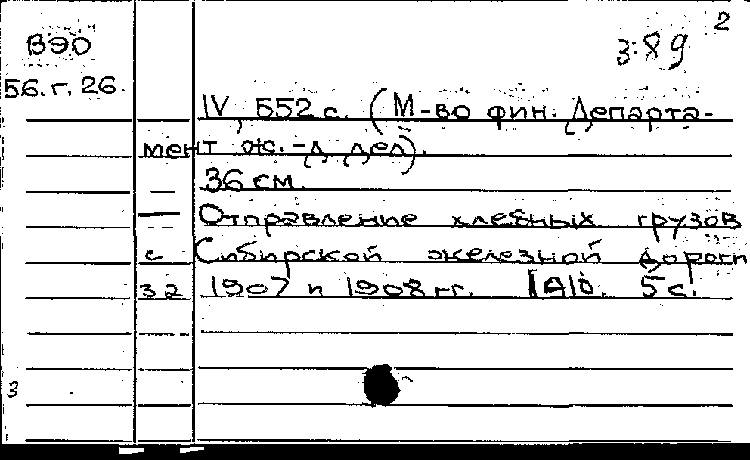 2
ВЭО
3:89
56.г.26.
IV, 552 с. (М-во фин. Департа-
мент ж.-д. дел).
36 см.
— Отправление хлебных грузов
с Сибирской железной дороги
32 1907 и 1908 гг. 1910. 5 с.
3